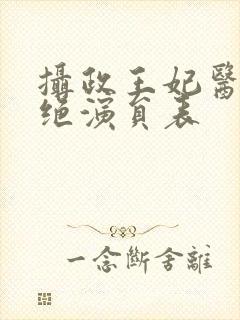 攝政王妃醫
絕演員表
一念斷舍離